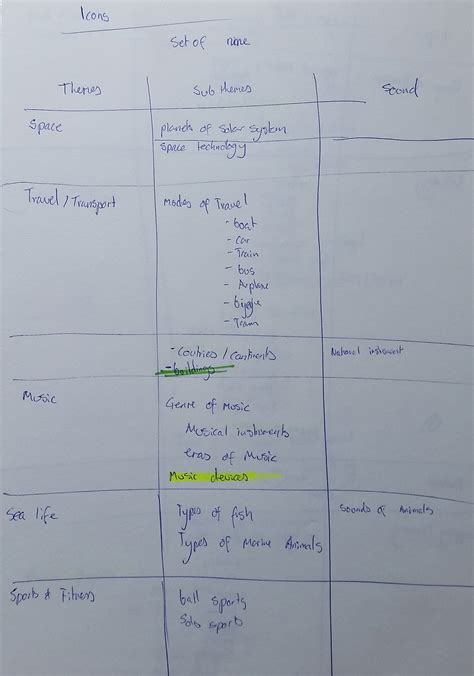 Icons
Set of nine
Themes Sub themes Sound
Space planets of Solar System
Space technology
Travel / Transport Modes of Travel
- boat
- car
- Train
- bus
- Airplane
- Tram
- Coutries / continents National instrument
- buildings
Music Genre of Music
Musical instruments
eras of Music
Music devices
Sea life Types of fish Sounds of Animals
Types of Marine Animals
Sports & Fitness ball sports
Solo sports